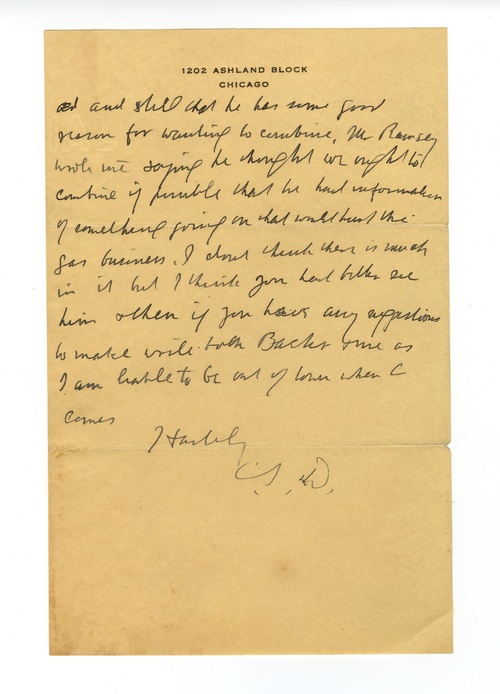 1202 ASHLAND BLOCK
CHICAGO
and still that he has some good
reason for wanting to combine, Mr Ramsey
wrote me saying he thought we ought to
combine if possible that he had information
of something going on that would hurt the
gas business. I dont think there is much
in it but I think you had better see
him & then if you have any suggestions
to make write both Backs me as
I am liable to be out of town when C
comes
Hastily
C. S. D.